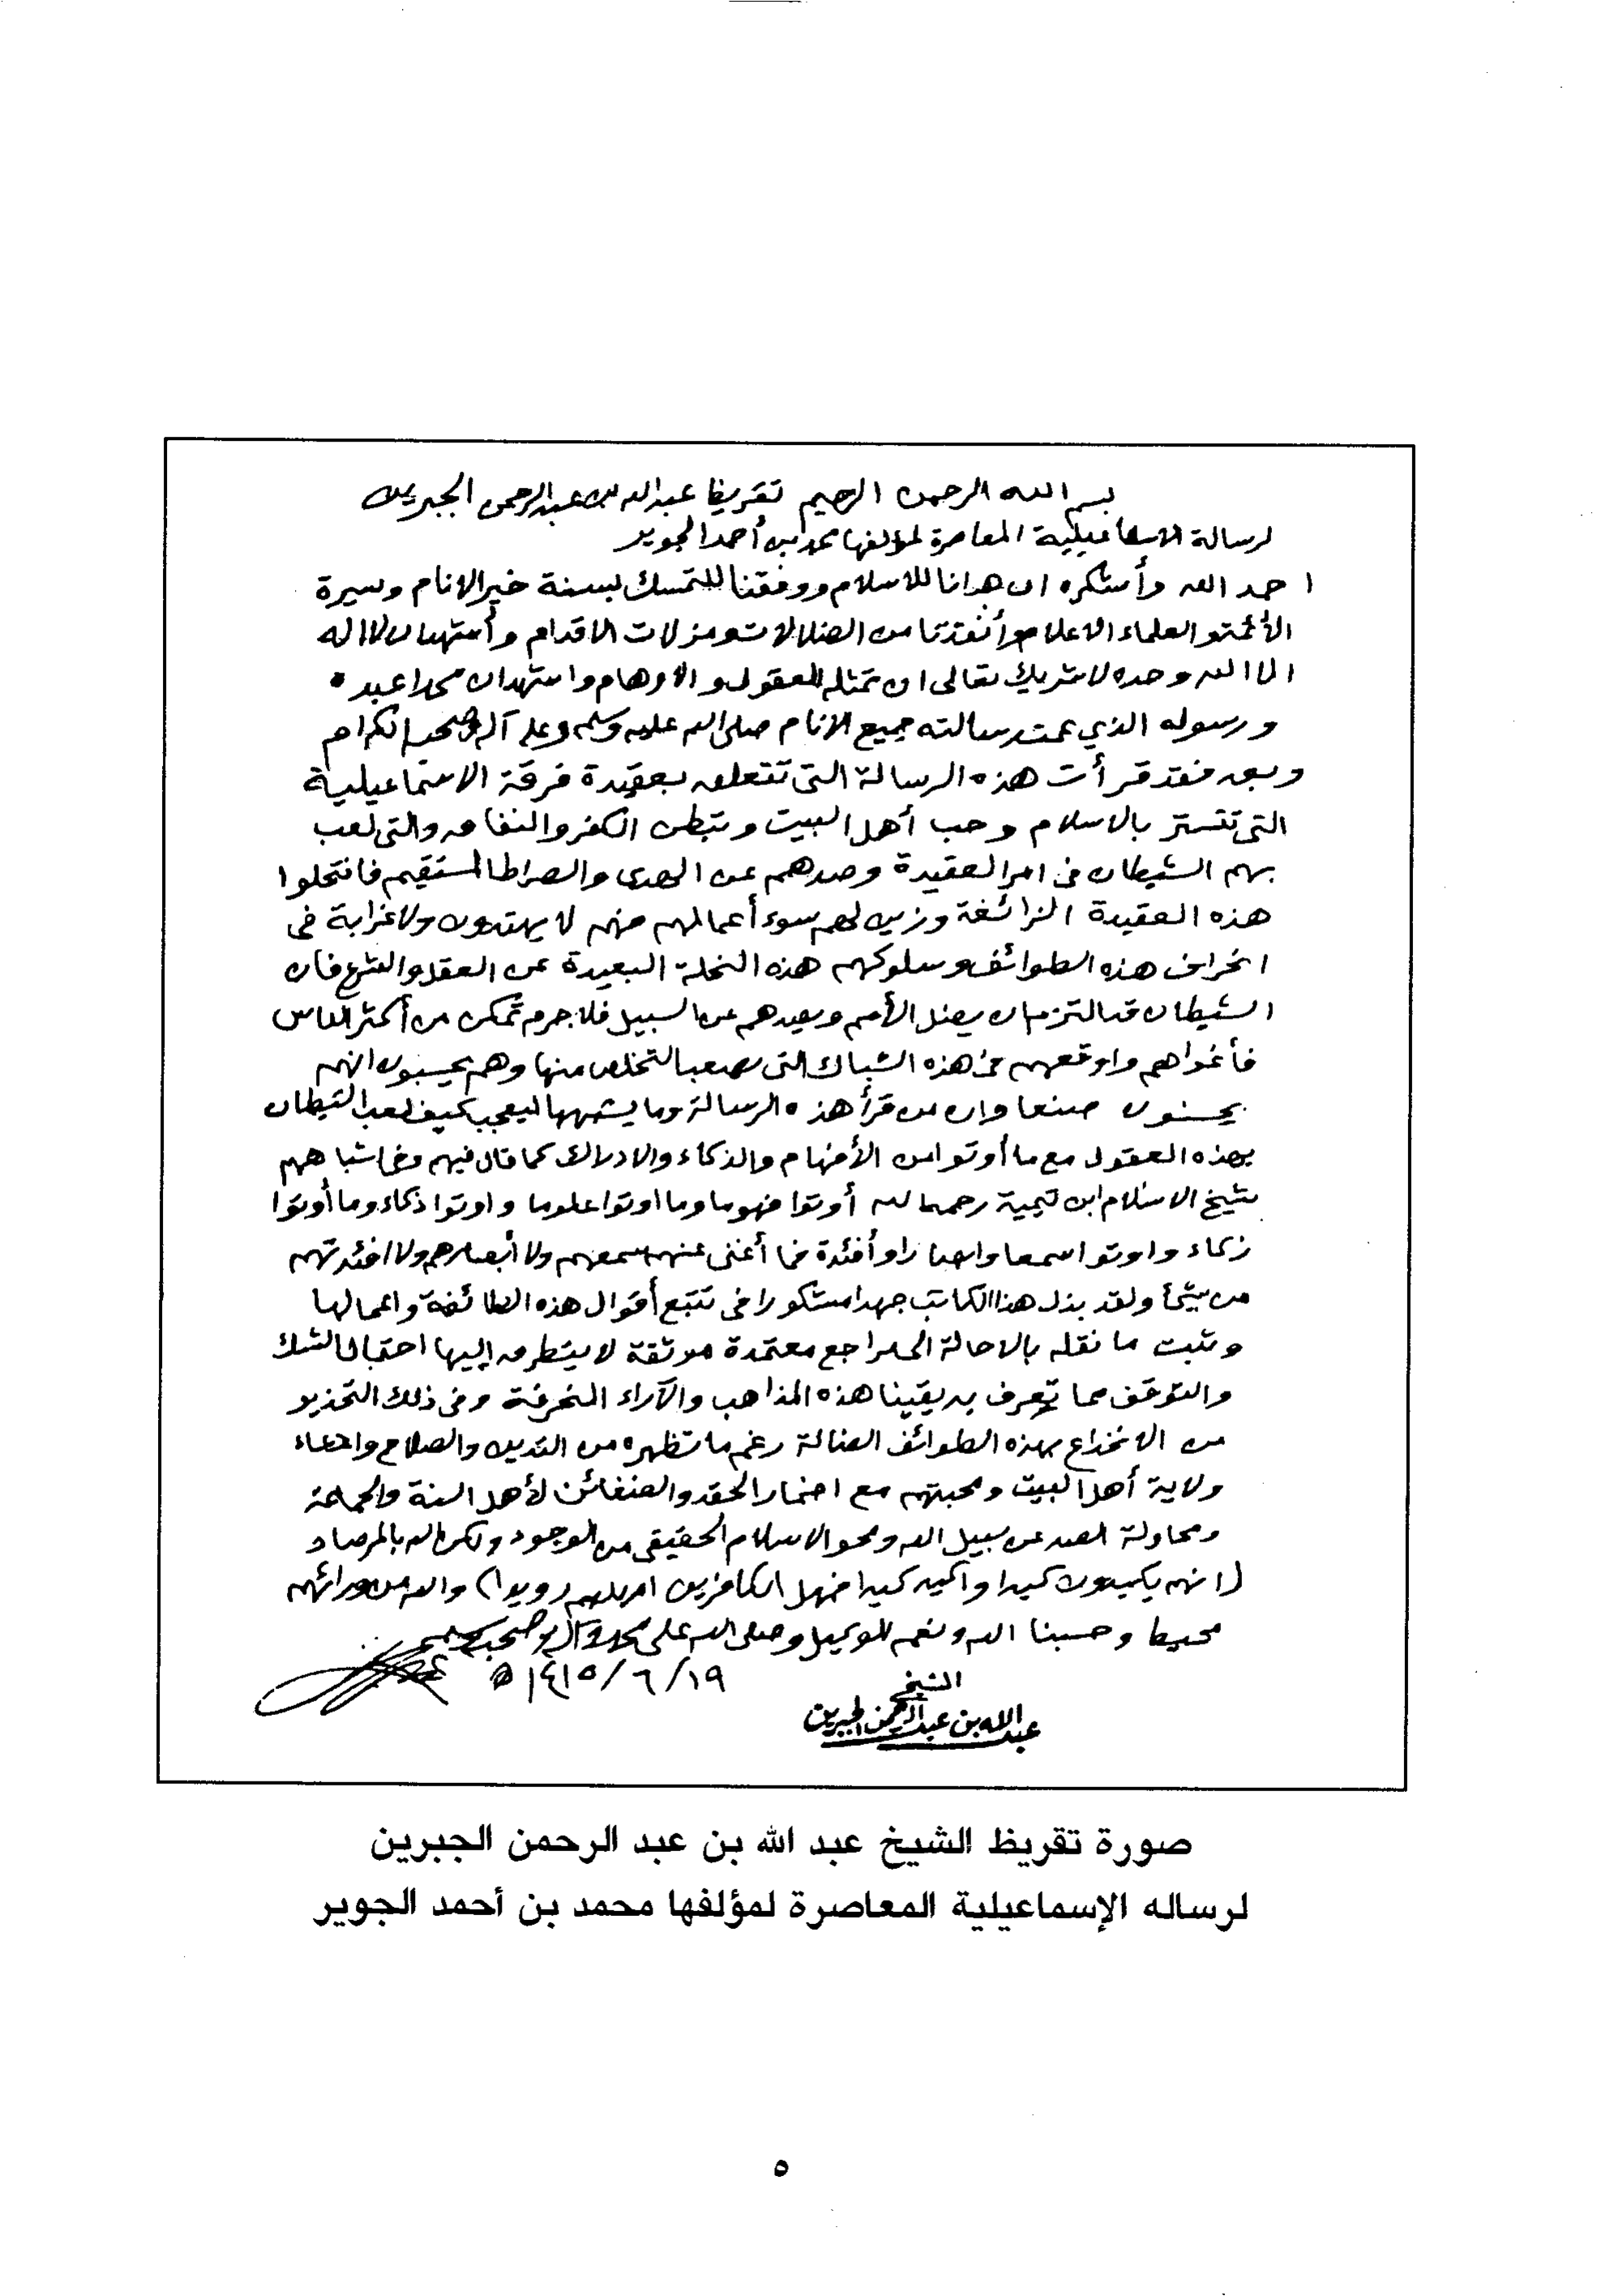 بسم الله الرحمن الرحيم تقريظ عبدالله بن عبدالرحمن الجبرين
لرسالة الاسماعيلية المعاصرة لمؤلفها محمد بن أحمد الجوير
احمد الله وأشكره ان هدانا للاسلام ووفقنا للتمسك بسنة خير الانام وسيرة
الأئمة والعلماء الاعلام وأنقذنا من الضلالات ومزلات الاقدام وأشهد ان لا اله
الا الله وحده لا شريك تعالى ان تمثله العقول والاوهام واشهد ان محمدا عبده
ورسوله الذي عمت رسالته جميع الانام صلى الله عليه وسلم وعلى آله وصحبه الكرام
وبعد فقد قرأت هذه الرسالة التي تتعلق بعقيدة فرقة الاسماعيلية
التي تتستر بالاسلام وحب أهل البيت وتبطن الكفر والنفاق والتي لعب
بهم الشيطان في امر العقيدة وصدهم عن الهدى والصراط المستقيم فانتحلوا
هذه العقيدة الزائغة وزين لهم سوء أعمالهم فهم لا يهتدون ولا غرابة في
انحراف هذه الطوائف وسلوكهم هذه النحلة البعيدة عن العقل والشرع فان
الشيطان قد التزم ان يضل الأمم ويصدهم عن السبيل فلا جرم تمكن من أكثر الناس
فأغواهم واوقعهم في هذه الشباك التي يصعب التخلص منها وهم يحسبون انهم
يحسنون صنعا وان من قرأ هذه الرسالة وما يشبهها ليعجب كيف لعب الشيطان
بهذه العقول مع ما أوتوا من الأفهام والذكاء والادراك كما قال فيهم وفي اشباههم
شيخ الاسلام ابن تيمية رحمه الله أوتوا فهوما وما اوتوا علوما واوتوا ذكاء وما أوتوا
زكاء واوتوا سمعا وابصارا وأفئدة فما أغنى عنهم سمعهم ولا أبصارهم ولا افئدتهم
من شيء ولقد بذل هذا الكاتب جهدا مشكورا في تتبع أقوال هذه الطائفة واعمالها
وتثبت ما نقله بالاحالة الى مراجع معتمدة موثقة لا يتطرق إليها احتمال الشك
والتوقف مما تعرف به يقينا هذه المذاهب والآراء المنحرفة وفي ذلك التحذير
من الانخداع بهذه الطوائف الضالة رغم ما تظهره من التدين والصلاح وادعاء
ولاية أهل البيت ومحبتهم مع اضمار الحقد والضغائن لأهل السنة والجماعة
ومحاولة الصد عن سبيل الله ومحو الاسلام الحقيقي من الوجود ولكن الله بالمرصاد
(انهم يكيدون كيدا واكيد كيدا فمهل الكافرين امهلهم رويدا) والله من ورائهم
محيط وحسبنا الله ونعم الوكيل وصلى الله على محمد وآله وصحبه وسلم
١٤١٥/٦/١٩ ه
الشيخ
عبدالله بن عبدالرحمن الجبرين
صورة تقريظ الشيخ عبد الله بن عبد الرحمن الجبرين
لرساله الإسماعيلية المعاصرة لمؤلفها محمد بن أحمد الجوير
٥